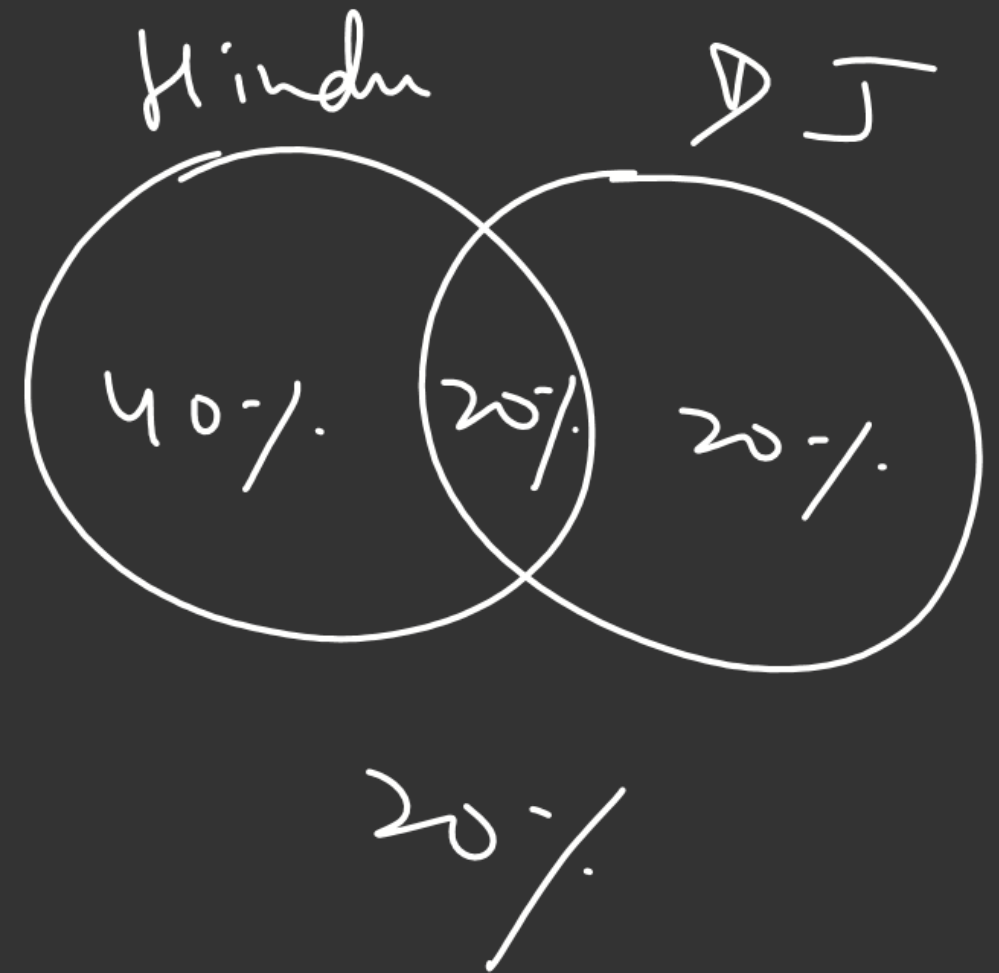 Hindu DJ
40% 20% 20%
20%